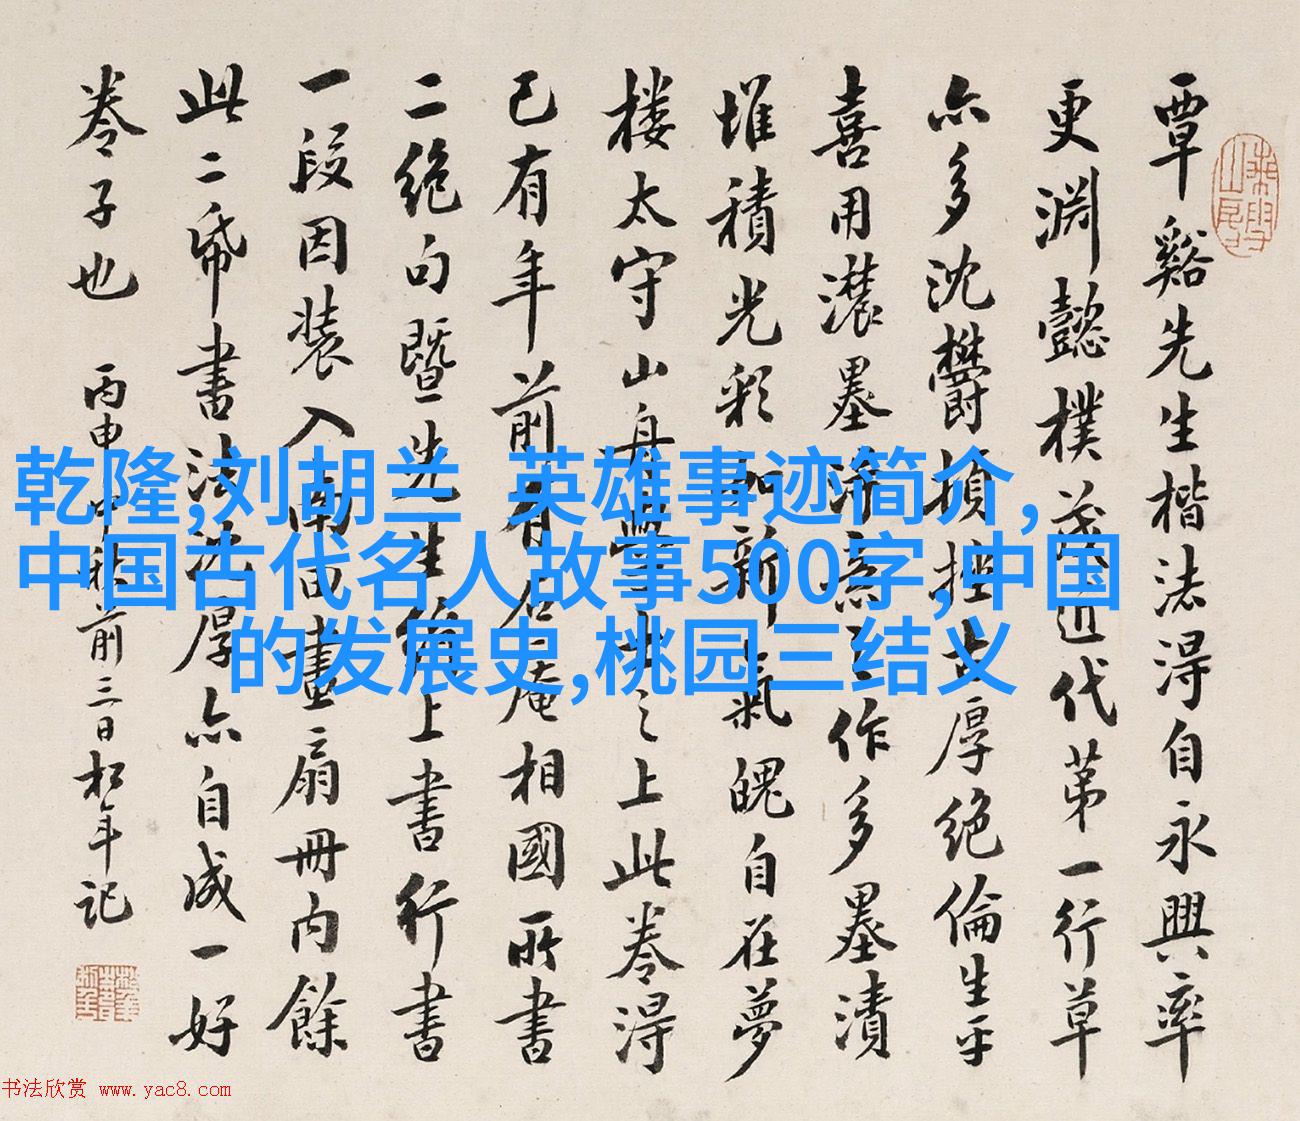 覃谿先生楷法得自永興率
更淵懿樸茂近代第一行草
亦多沈鬱頓挫古厚絕倫生平
喜用濃墨作多墨漬
堆積光彩如新氣魄自在夢
樓太守山舟學士之上此卷得
已有年前有石庵相國所書
二絕句暨先生上書行書
一段因裝入南田畫扇冊內餘
此二帋書法沈厚亦自成一好
卷子也 丙申中秋前三日松年記
乾隆,刘胡兰 英雄事迹简介,
中国古代名人故事500字,中国
的发展史,桃园三结义
书法欣赏 www.yac8.com